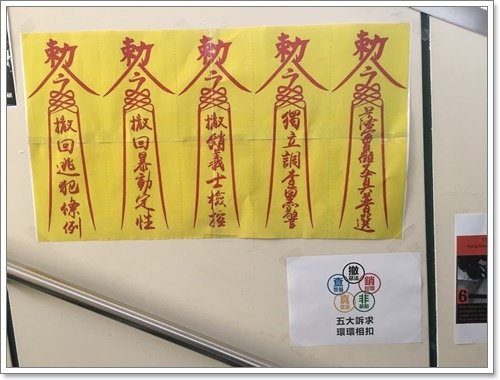 勅令
撤回逃犯條例
勅令
撤回暴動定性
勅令
撤銷義士檢控
勅令
獨立調查黑警
勅令
落實雙真普選
撤
查
銷
真
非
五大訴求
環環相扣
6